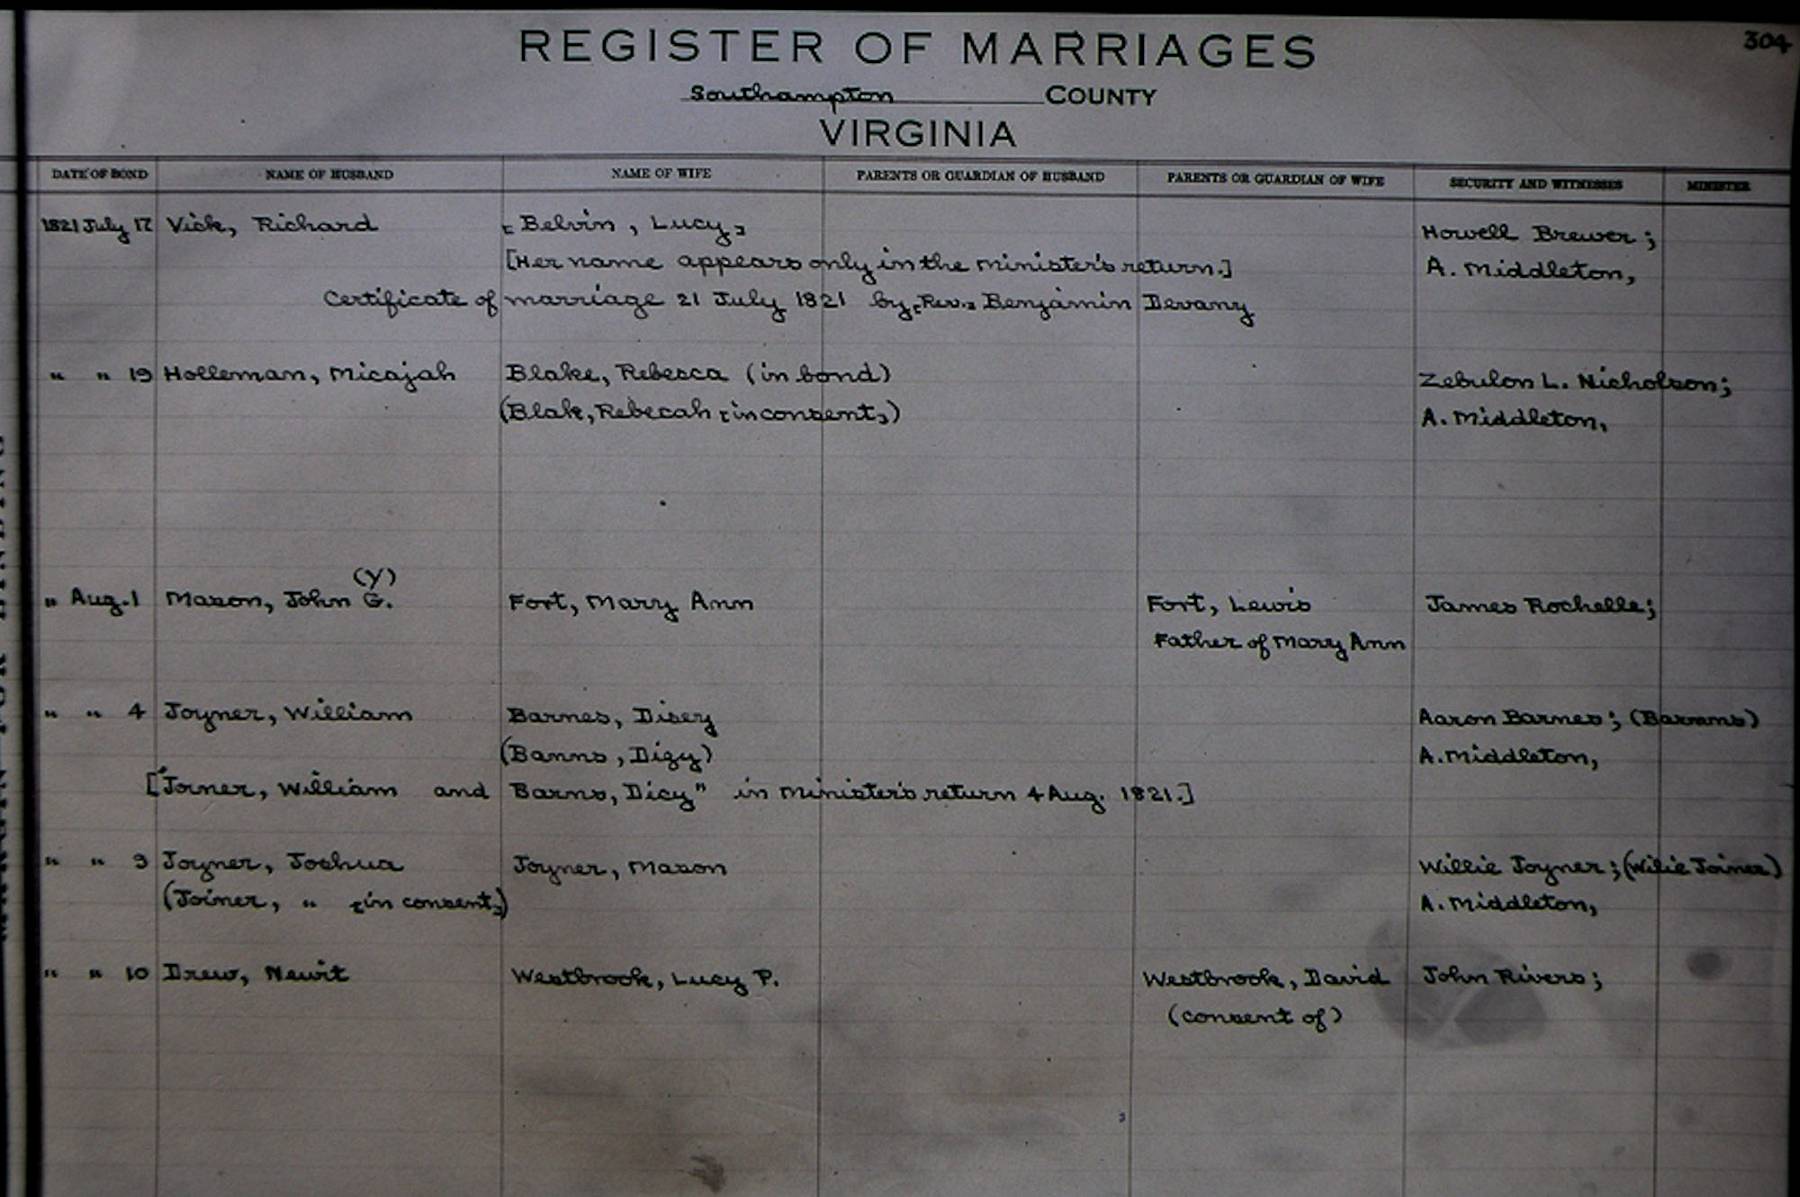 304
REGISTER OF MARRIAGES
Southampton COUNTY
VIRGINIA
DATE OF BOND NAME OF HUSBAND NAME OF WIFE PARENTS OR GUARDIAN OF HUSBAND PARENTS OR GUARDIAN OF WIFE SECURITY AND WITNESSES MINISTER
1821 July 17 Vick, Richard [Belvin, Lucy] Howell Brewer;
[Her name appears only in the minister's return.] A. Middleton,
Certificate of marriage 21 July 1821 by [Rev.] Benjamin Devany
" " 19 Holleman, Micajah Blake, Rebecca (in bond) Zebulon L. Nicholson;
(Blak, Rebecah [in consent]) A. Middleton,
(Y)
" Aug. 1 Mason, John G. Fort, Mary Ann Fort, Lewis James Rochelle;
Father of Mary Ann
" " 4 Joyner, William Barnes, Disey Aaron Barnes; (Barnns)
(Banns, Dizy) A. Middleton,
["Jorner, William and Barns, Dicy" in minister's return 4 Aug. 1821.]
" " 9 Joyner, Joshua Joyner, Mason Willie Joyner; (Wilie Joiner)
(Joiner, " [in consent]) A. Middleton,
" " 10 Drew, Newit Westbrook, Lucy P. Westbrook, David John Rivers;
(consent of)